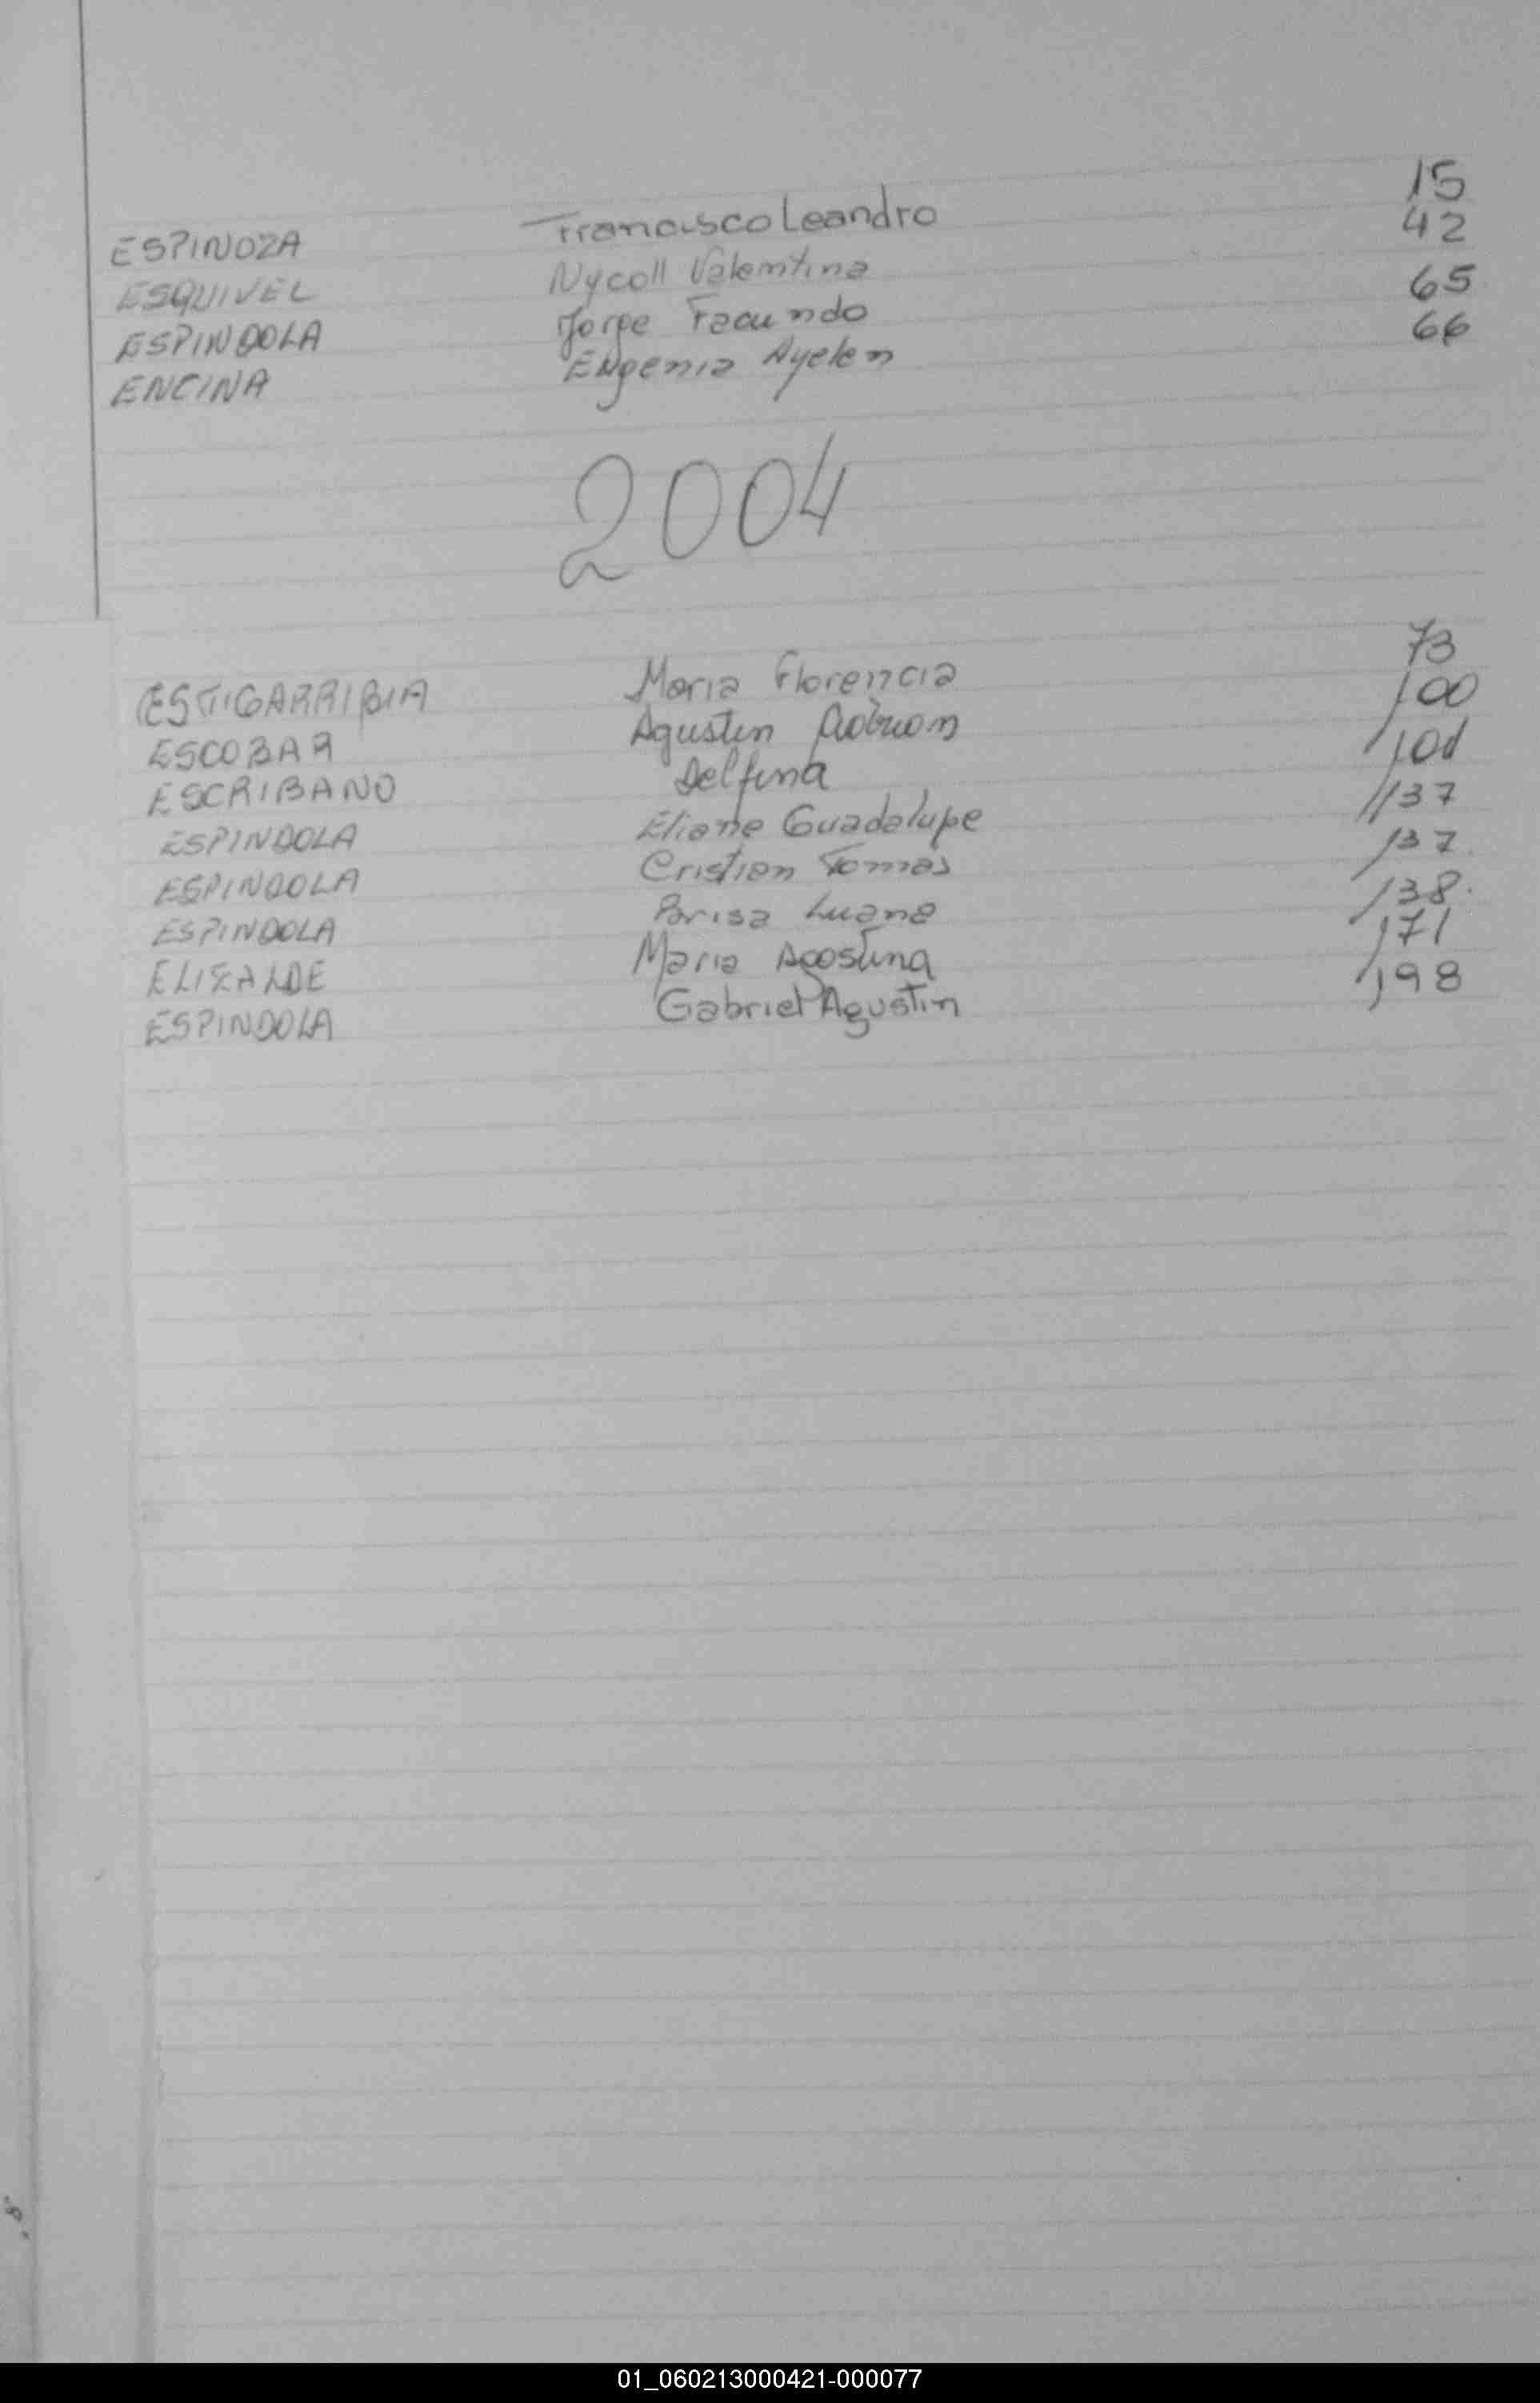 ESPINOZA Francisco Leandro 15
ESQUIVEL Nycoll Valentina 42
ESPINDOLA Jorge Facundo 65
ENCINA Eugenia Ayelen 66
2004
ESTIGARRIBIA Maria Florencia 73
ESCOBAR Agustin 100
ESCRIBANO Delfina 101
ESPINDOLA Eliane Guadalupe 137
ESPINDOLA Cristian Tomás 137
ESPINDOLA Parisa Luana 138
ELIZALDE Maria Agostina 171
ESPINDOLA Gabriel Agustin 198
01_060213000421-000077